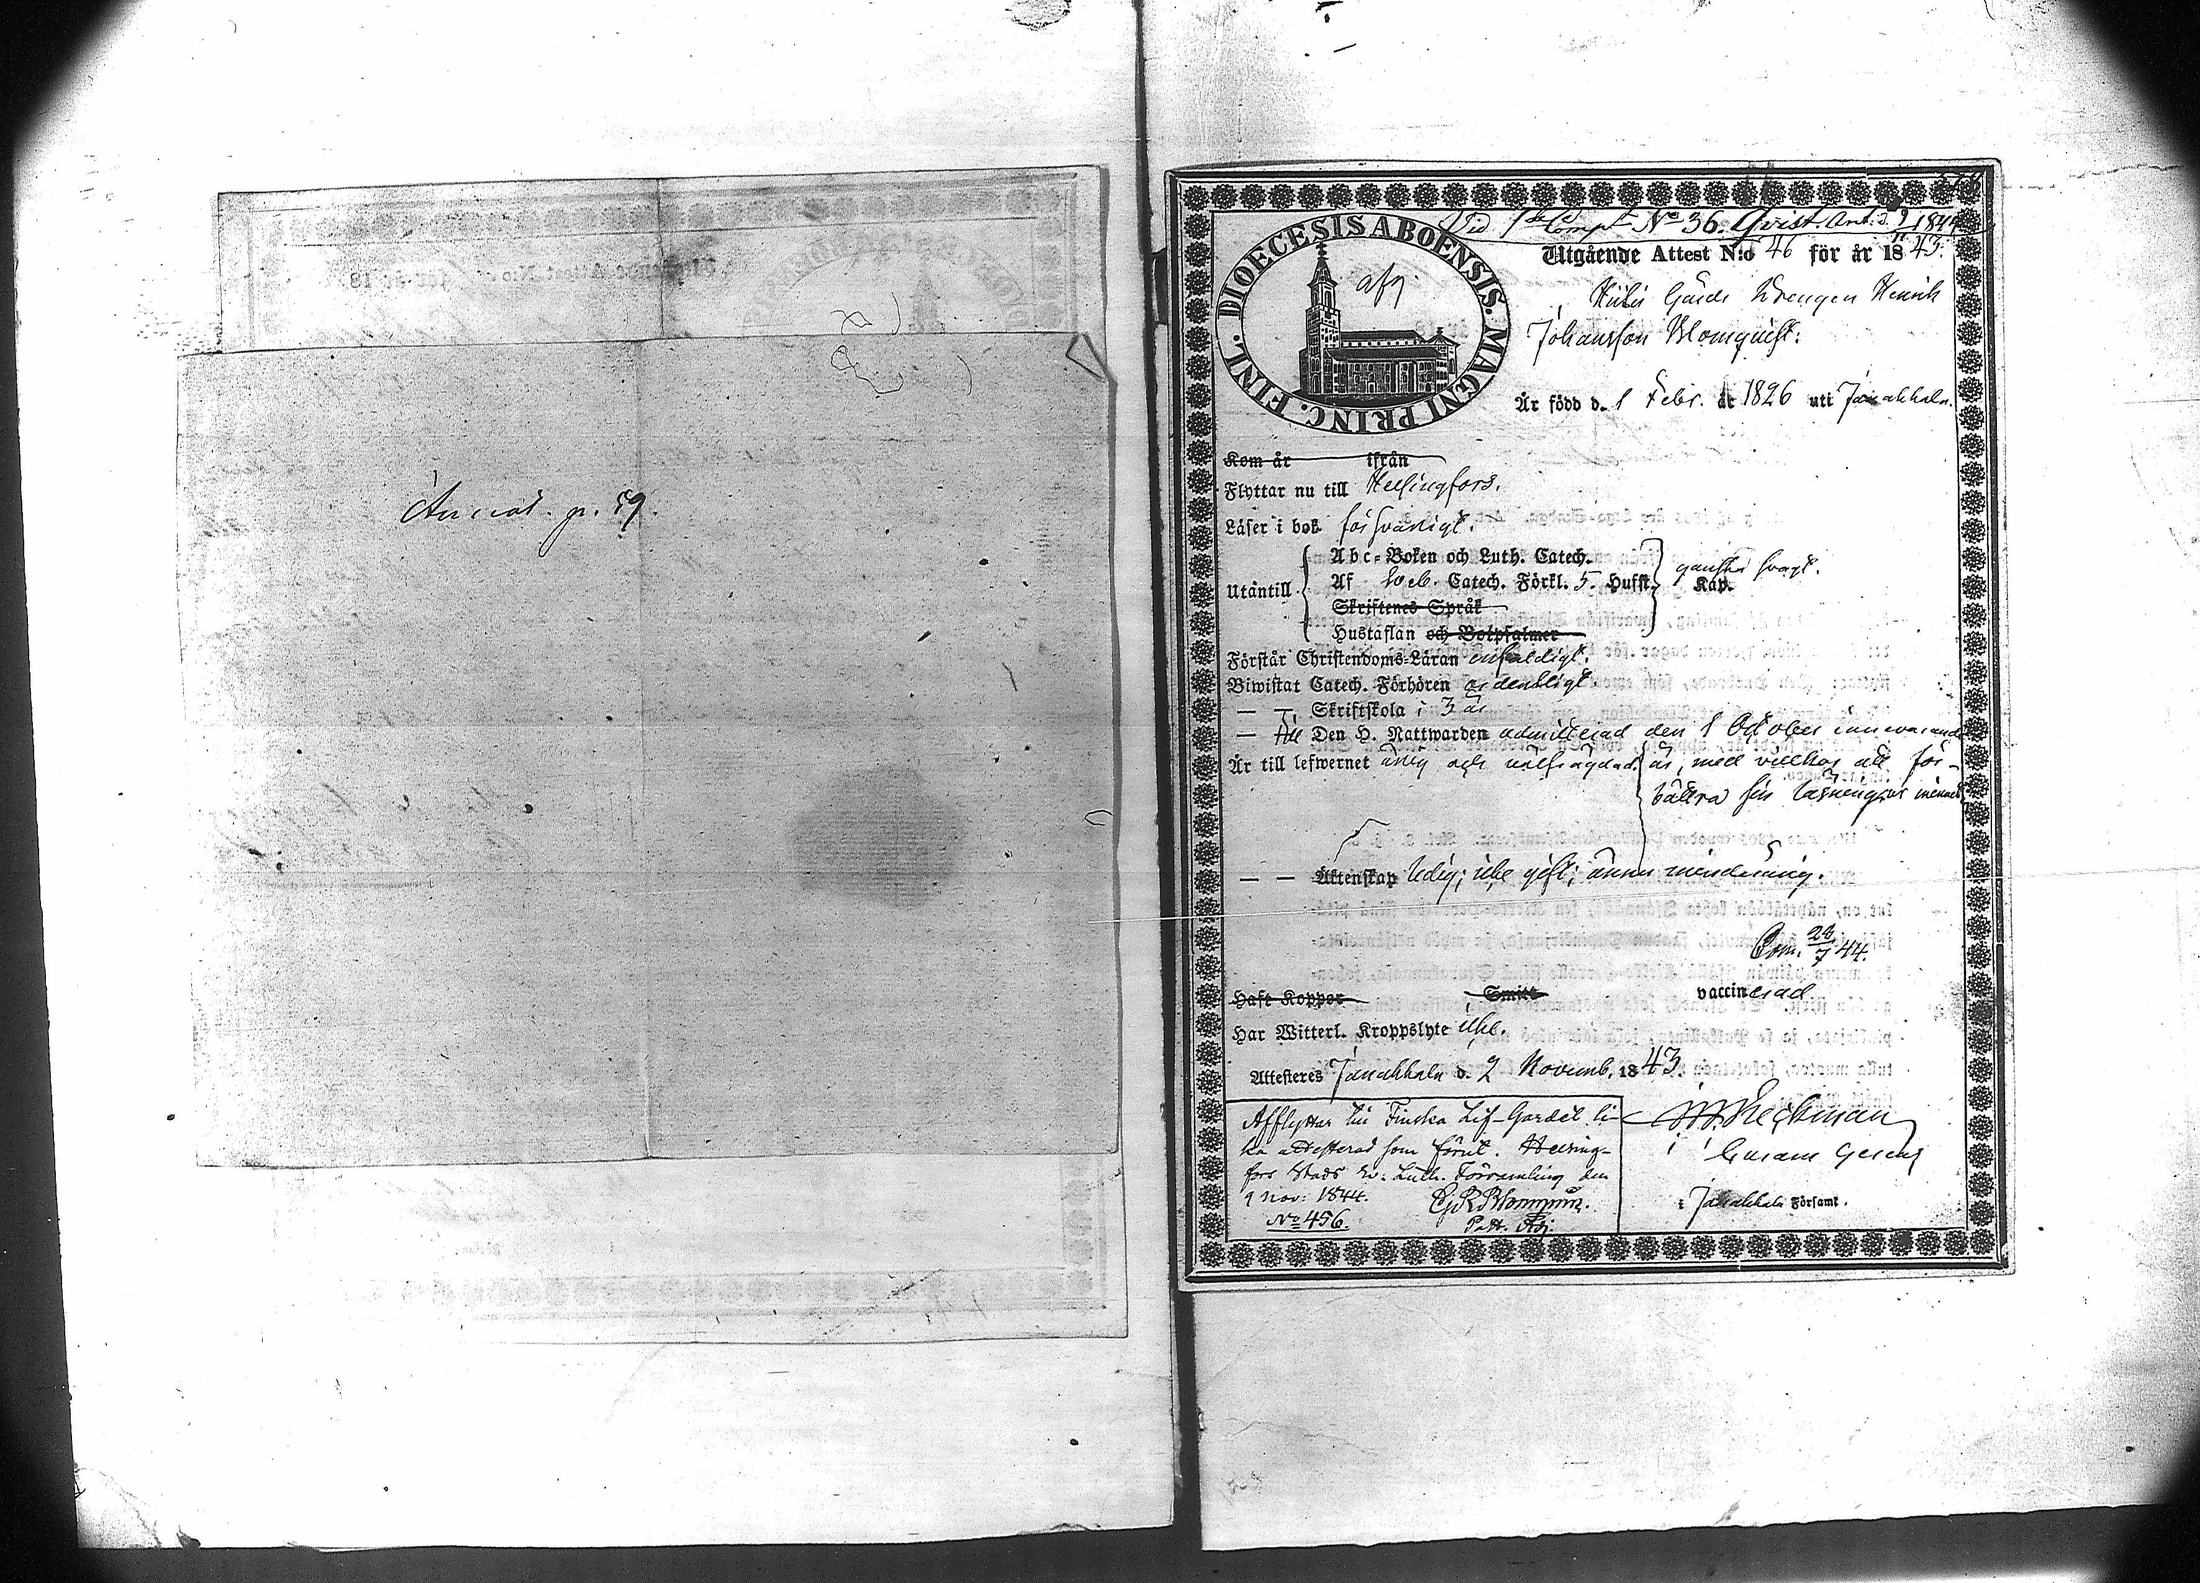 Annot. p. 59.
Vid 1ste Comp. No 36. Qvist. Ank. d. 9/11 1844
DIOECESIS ABOENSIS. MAGNI PRINC. FINL.
afg.
Utgående Attest N:o 46 för år 1843.
Gårds Drengen Henrik
Johansson Blomqvist.
Är född d. 1 Febr. år 1826 uti Janakkala.
Kom år ifrån
Flyttar nu till Helsingfors.
Läser i bok försvarligt.
Utantill
Abc-Boken och Luth. Catech.
Af Sveb. Catech. Förkl. 5. Hufst. Kap. ganska svagt.
Skriftenes Språk
Hustaflan och Botpsalmer
Förstår Christendoms-Läran enfaldigt.
Biwistat Catech. Förhören ordentligt
— — Skriftskola i 3 år
— till Den H. Nattwarden admitterad den 1 October innevarande
år, med villkor att för-
bättra sin läsning
Är till lefwernet ärlig och välfrägdad.
— — Äktenskap ledig; icke gift; ännu minderårig.
Com. 28/7 44.
Haft Koppor Smitt vaccinerad
Har Witterl. Kroppslyte icke.
Attesteres Janakkala d. 2 Novemb. 1843.
Afflyttar till Finska Lif-Gardet li-
ka attesterad som förut. Helsing-
fors Stads Ev. Luth. Församling den
9 Nov: 1844.
No 456.
Past. Adj.
i Janakkala Församl.